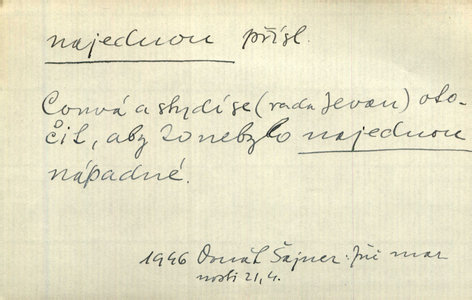 najednou přísl.
a stydí se (rada Jevan) oto-
čil, aby to nebylo najednou
nápadné.
1946 Donát Šajner: Při mar
nosti 21, 4.